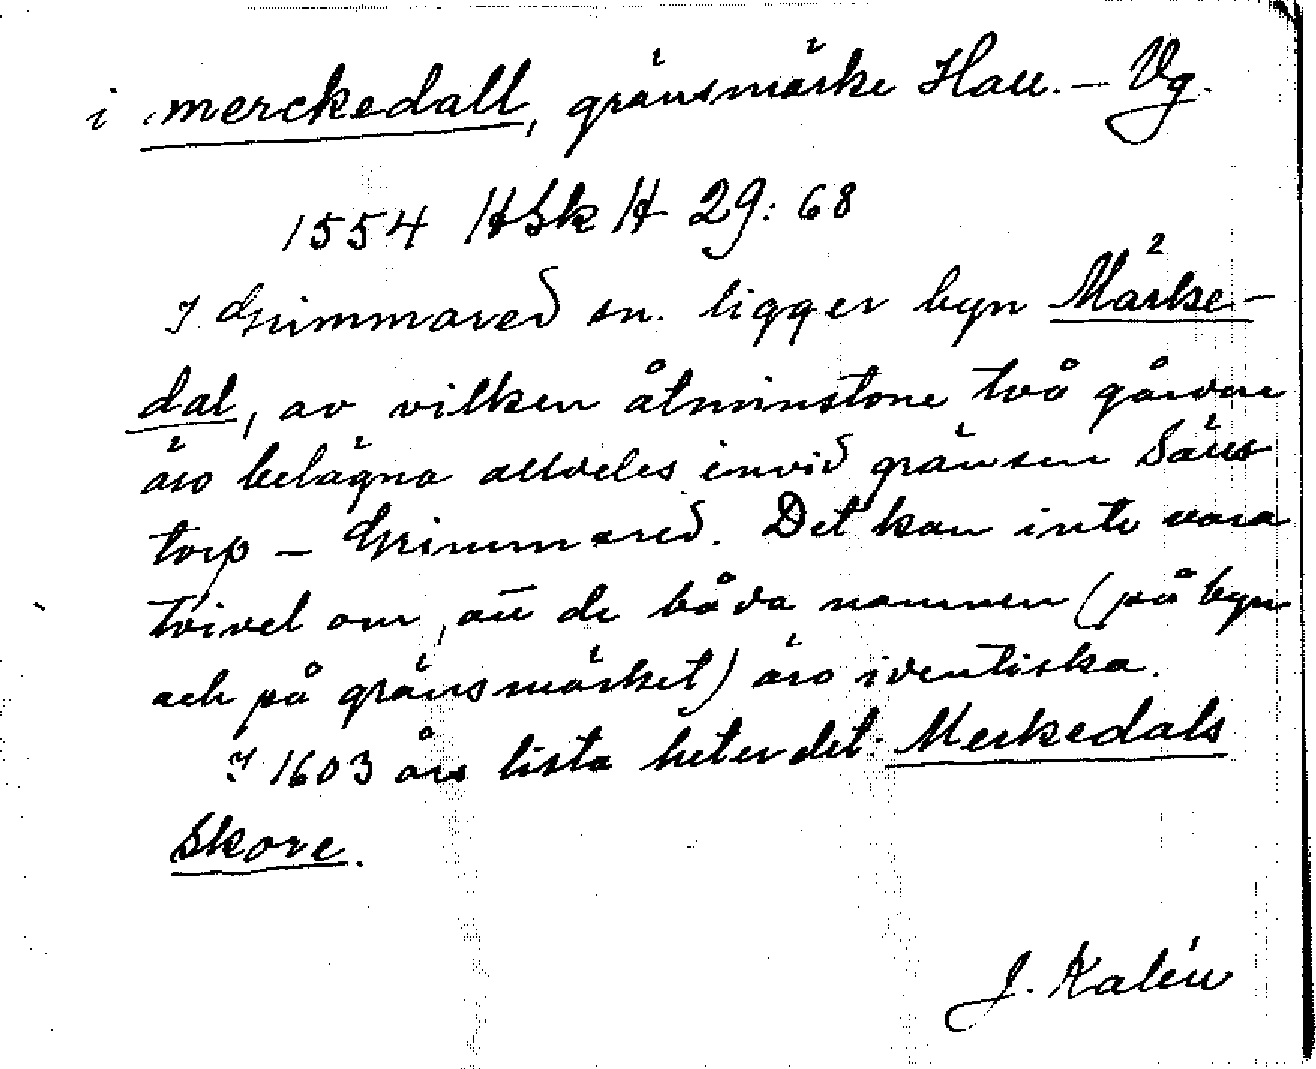 i merckedall, gränsmärke Hall. – Vg.
1554 HSkH 29: 68
I Grimmared sn. ligger byn Märke-
dal, av vilken åtminstone två gårdar
äro belägna alldeles invid gränsen Säus
torp – Grimmared. Det kan inte vara
tvivel om, att de båda namnen (på byn
och på gränsmärket) äro identiska.
I 1603 års lista heter det: Merkedals
Skore.
J. Kalén